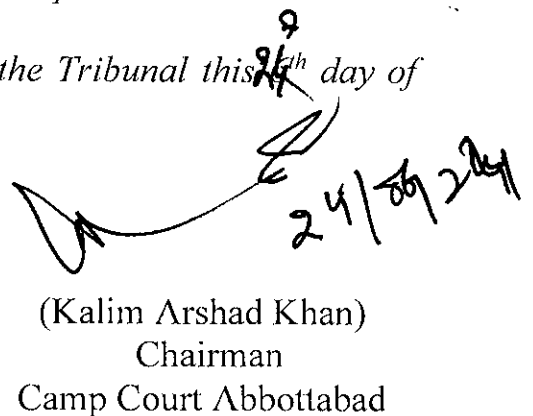 the Tribunal this 24th day of
24/06/2024
(Kalim Arshad Khan)
Chairman
Camp Court Abbottabad